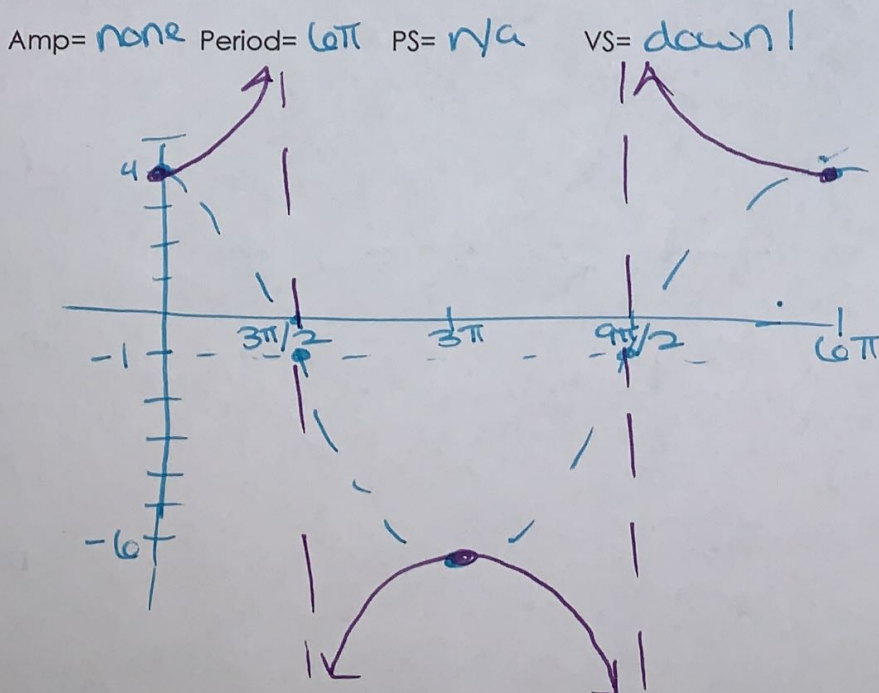 Amp= none Period= 6π PS= n/a VS= down 1
4
3π/2 3π 9π/2 6π
-1
-6